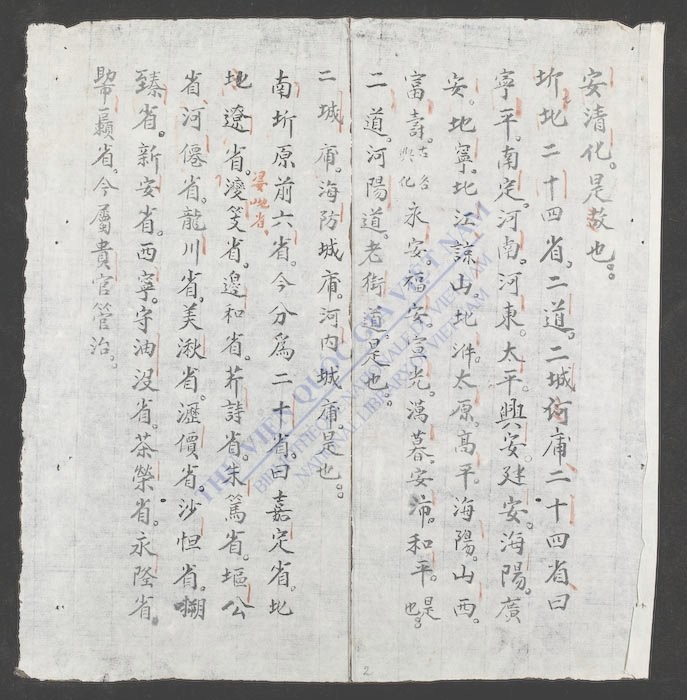 安清化。是故也。
圻北二十四省。二道。二城何庯二十四省曰
寧平。南定。河南。河東。太平。興安。廷安。海陽。廣
安。北寧。北江諒山北泮。太原。高平。海陽。山西。
富壽。古名興化永安。福安。宣光。萊蓦安沛。和平。是也。
二道。河陽道。老街道。是也。
二城庯。海防城庯。河内城庯。是也。
南圻原前六省。今分爲二十省。曰嘉定省。地
地遼省。𣾼芠省。邊和省。茶詩省。朱篤省。塸公
梁地省
省河僊省。龍川省。美湫省。瀝價省。沙怛省。
臻省。新安省。西寧。守油没省。茶榮省。永隆省。
省。今屬貴官管治。
THƯ VIỆN QUỐC GIA VIỆT NAM
BIBLIOTHÈQUE NATIONALE DU VIETNAM
NATIONAL LIBRARY OF VIETNAM
2